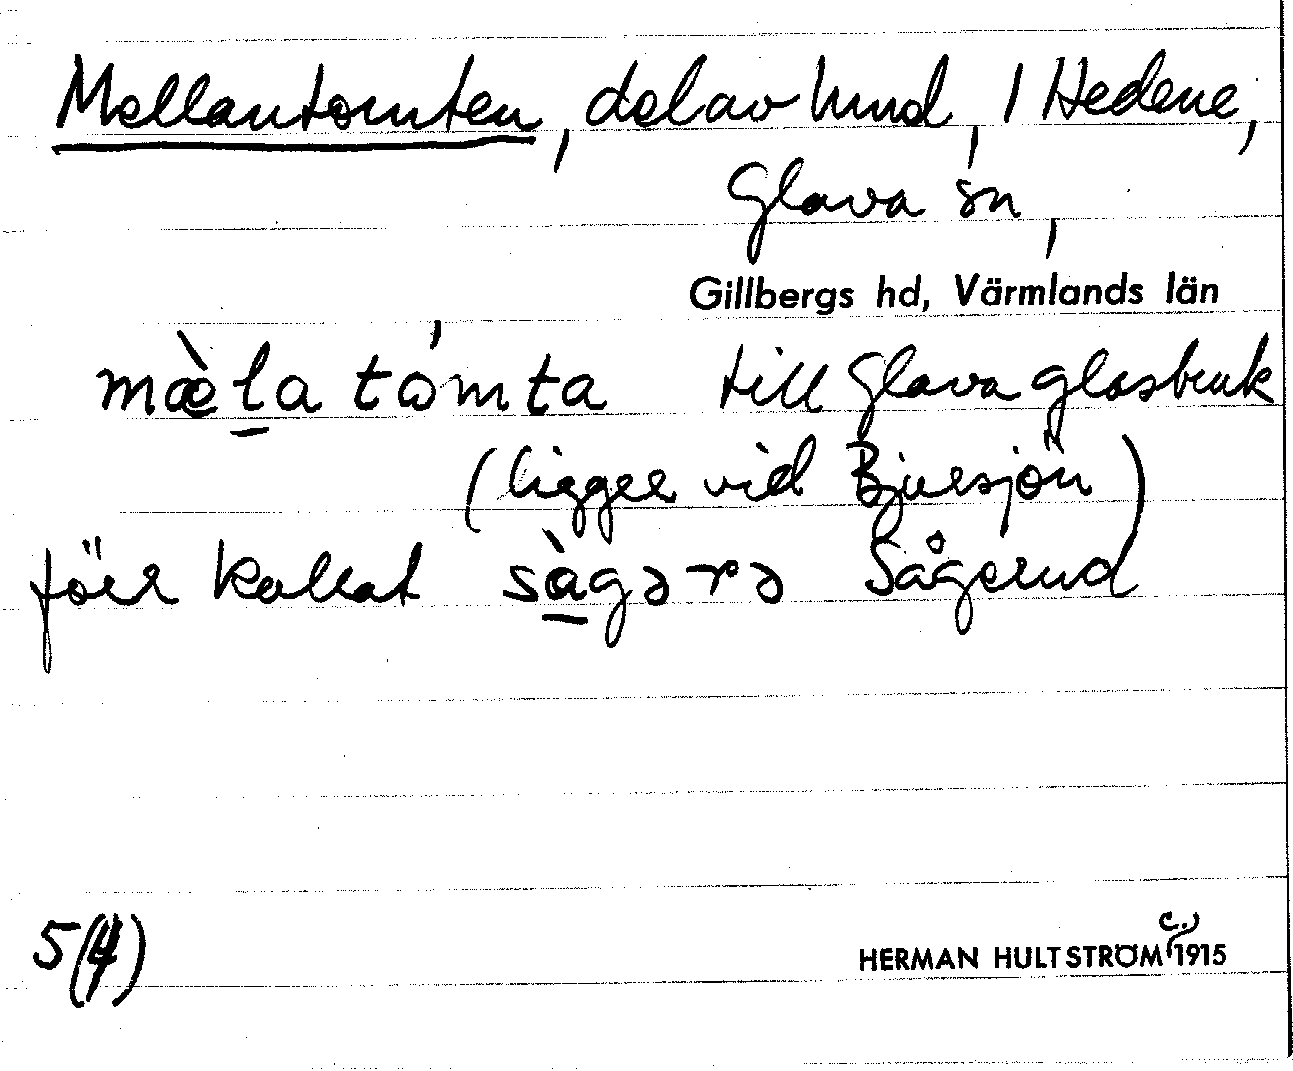 Mellantomten, del av hmd, 1 Hedene,
Glava sn,
Gillbergs hd, Värmlands län
mæ̀la tómta till Glava glasbruk
(ligger vid Bjursjön)
förr kallat sàgərə Sågerud
5(4)
HERMAN HULTSTRÖM c. 1915